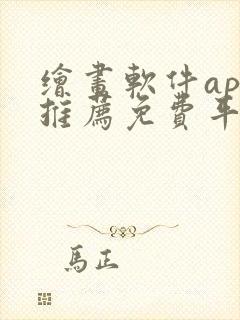 繪畫軟件ap
推薦免費平
馬正